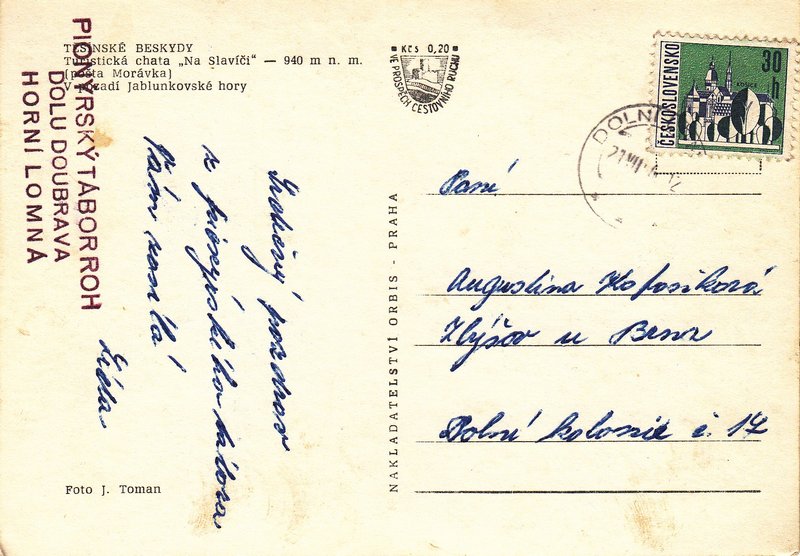 TĚŠÍNSKÉ BESKYDY
Turistická chata „Na Slavíči" — 940 m n. m.
(pošta Morávka)
V pozadí Jablunkovské hory
PIONÝRSKÝ TÁBOR ROH
DOLU DOUBRAVA
HORNÍ LOMNÁ
Srdečný pozdrav
z pionýrského tábora
Vám zasílá
Foto J. Toman
NAKLADATELSTVÍ ORBIS - PRAHA
Kčs 0,20
VE PROSPĚCH CESTOVNÍHO RUCHU
ČESKOSLOVENSKO
30 h
DOLN
Paní
Augustina
Zbýšov u Brna
Dolní kolonie č. 17